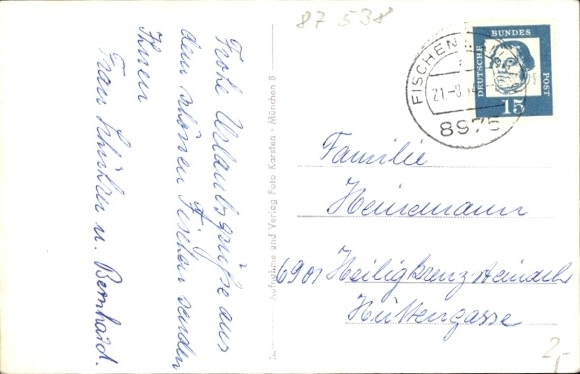 87 538
Frohe Urlaubsgrüße aus
dem schönen Fischen senden
Ihnen
Frau u. Bernhard.
Aufnahme und Verlag Foto Karsten · München 8
FISCHEN
21.-8.
8975
DEUTSCHE BUNDESPOST
15
Familie
Heinemann
6901 Heiligkreuzsteinach
Hüttengasse
2,-